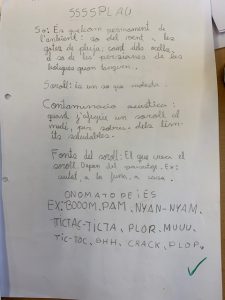 SSSSPLAU
So: És quelcom permanent de
l'ambient: so del vent, les
gotes de pluja, cant dels ocells,
o so de les persianes de les
botigues quan tanquen.
Soroll: és un so que molesta.
Contaminació acústica:
quan s'afegeix un soroll al
medi, per sobre dels lími-
ts saludables.
Fonts del soroll: El que crea el
soroll. Depen del paisatge. Ex:
ciutat, a la fàbrica, a casa.
ONOMATOPEIES
EX: BOOOM, PAM, NYAN-NYAM,
TICTAC-TICTA, PLOR, MUUU,
TIC-TOC, SHH, CRACK, PLOP.